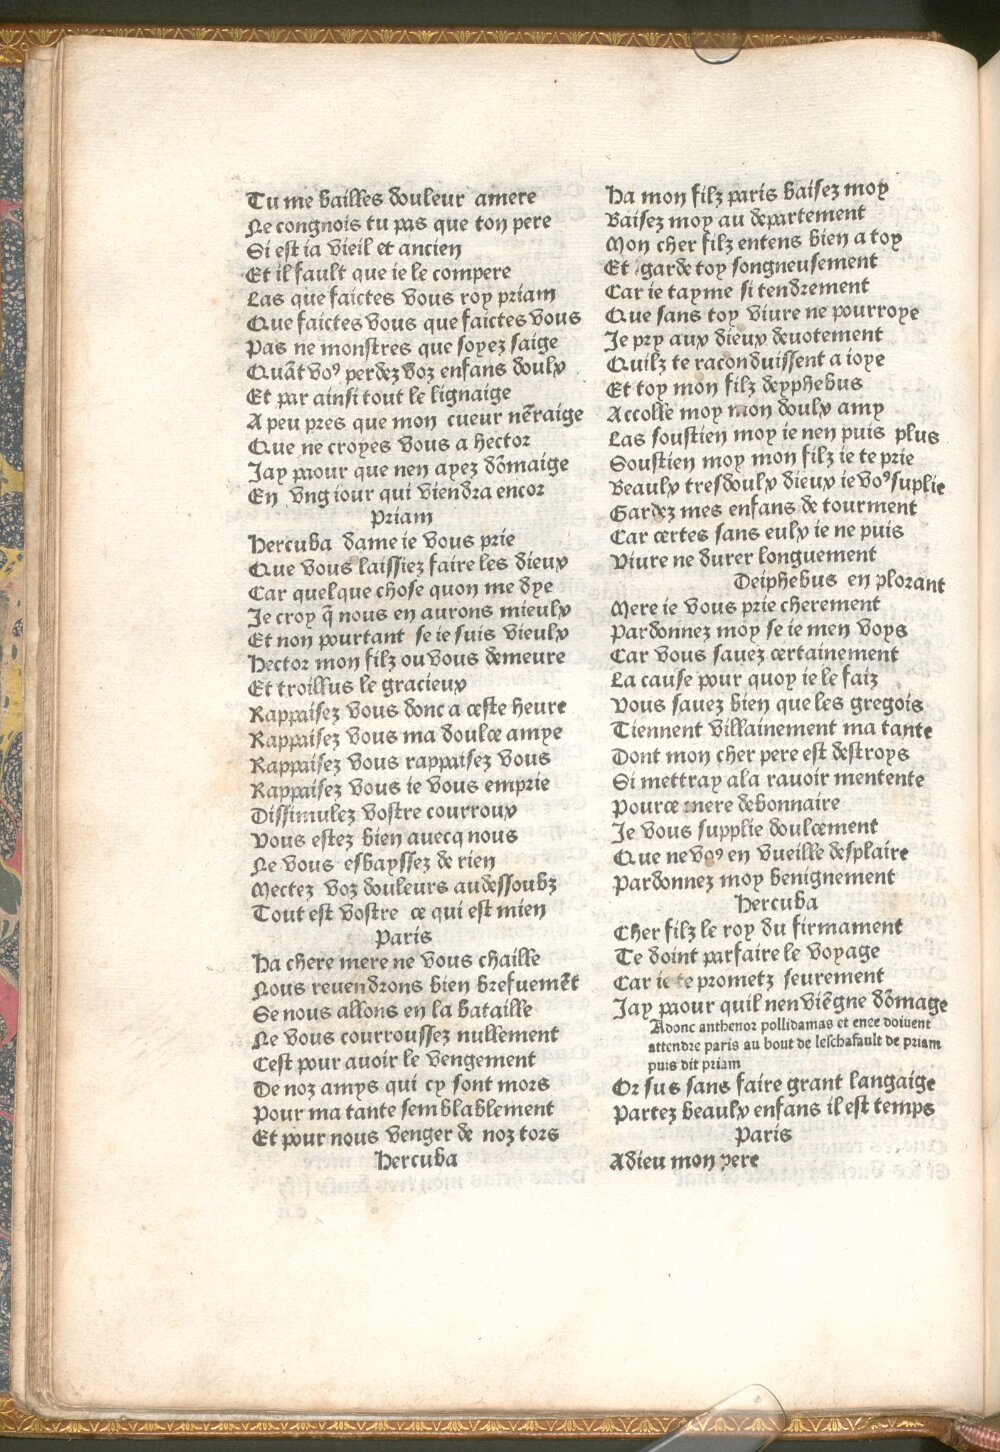 Tu me bailles douleur amere
Ne congnois tu pas que ton pere
Si est ia vieil et ancien
Et il fault que ie le compere
Las que faictes vous roy priam
Que faictes vous que faictes vous
Pas ne monstres que soyez saige
Quãt voꝰ perdez voz enfans doulx
Et par ainsi tout le lignaige
A peu pres que mon cueur nẽraige
Que ne croyes vous a hector
Jay paour que nen ayez dõmaige
En vng iour qui viendra encor
Priam
Hercuba dame ie vous prie
Que vous laissiez faire les dieux
Car quelque chose quon me dye
Je croy q̃ nous en aurons mieulx
Et non pourtant se ie suis vieulx
Hector mon filz ou vous demeure
Et troillus le gracieux
Rappaisez vous donc a ceste heure
Rappaisez vous ma doulce amye
Rappaisez vous rappaisez vous
Rappaisez vous ie vous emprie
Dissimulez vostre courroux
Vous estez bien auecq nous
Ne vous esbayssez de rien
Mectez voz douleurs au dessoubz
Tout est vostre ce qui est mien
Paris
Ha chere mere ne vous chaille
Nous reuendrons bien brefuemẽt
Se nous allons en la bataille
Ne vous courroussez nullement
Cest pour auoir le vengement
De noz amys qui cy sont mors
Pour ma tante semblablement
Et pour nous venger de noz tors
Hercuba
Ha mon filz paris baisez moy
Baisez moy au departement
Mon cher filz entens bien a toy
Et garde toy songneusement
Car ie tayme si tendrement
Que sans toy viure ne pourroye
Je pry aux dieux deuotement
Quilz te raconduissent a ioye
Et toy mon filz deyphebus
Accolle moy mon doulx amy
Las soustien moy ie nen puis plus
Soustien moy mon filz ie te prie
Beaulx tresdoulx dieux ie voꝰ suplie
Gardez mes enfans de tourment
Car certes sans eulx ie ne puis
Viure ne durer longuement
Deiphebus en plorant
Mere ie vous prie cherement
Pardonnez moy se ie men voys
Car vous sauez certainement
La cause pour quoy ie le faiz
Vous sauez bien que les gregois
Tiennent villainement ma tante
Dont mon cher pere est destroys
Si mettray a la rauoir mentente
Pource mere debonnaire
Je vous supplie doulcement
Que ne voꝰ en vueille desplaire
Pardonnez moy benignement
Hercuba
Cher filz le roy du firmament
Te doint parfaire le voyage
Car ie te prometz seurement
Jay paour quil nen viẽgne dõmage
Adonc anthenor pollidamas et enee doiuent
attendre paris au bout de leschafault de priam
puis dit priam
Or sus sans faire grant langaige
Partez beaulx enfans il est temps
Paris
Adieu mon pere